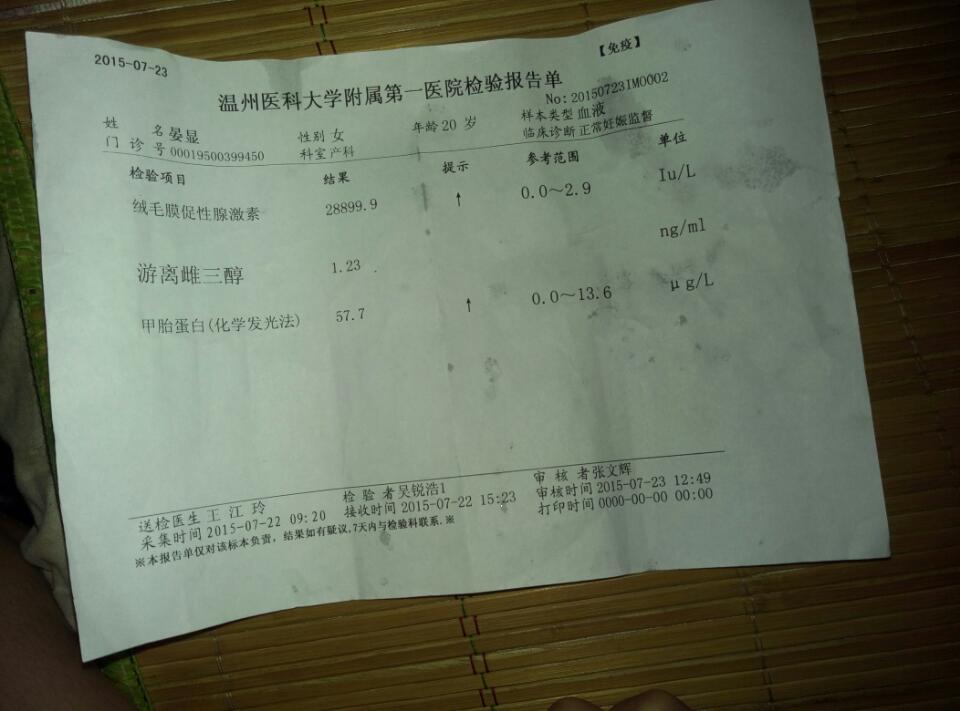 2015-07-23
【免疫】
温州医科大学附属第一医院检验报告单
No: 20150723IM0002
姓 名 晏显 性别 女 年龄 20 岁 样本类型 血液
门 诊 号 00019500399450 科室 产科 临床诊断 正常妊娠监督
检验项目 结果 提示 参考范围 单位
绒毛膜促性腺激素 28899.9 ↑ 0.0～2.9 Iu/L
游离雌三醇 1.23 ng/ml
甲胎蛋白(化学发光法) 57.7 ↑ 0.0～13.6 μg/L
送检医生 王 江 玲 检 验 者 吴锐浩1 审 核 者 张文辉
采集时间 2015-07-22 09:20 接收时间 2015-07-22 15:23 审核时间 2015-07-23 12:49
打印时间 0000-00-00 00:00
※本报告单仅对该标本负责，结果如有疑议,7天内与检验科联系.※